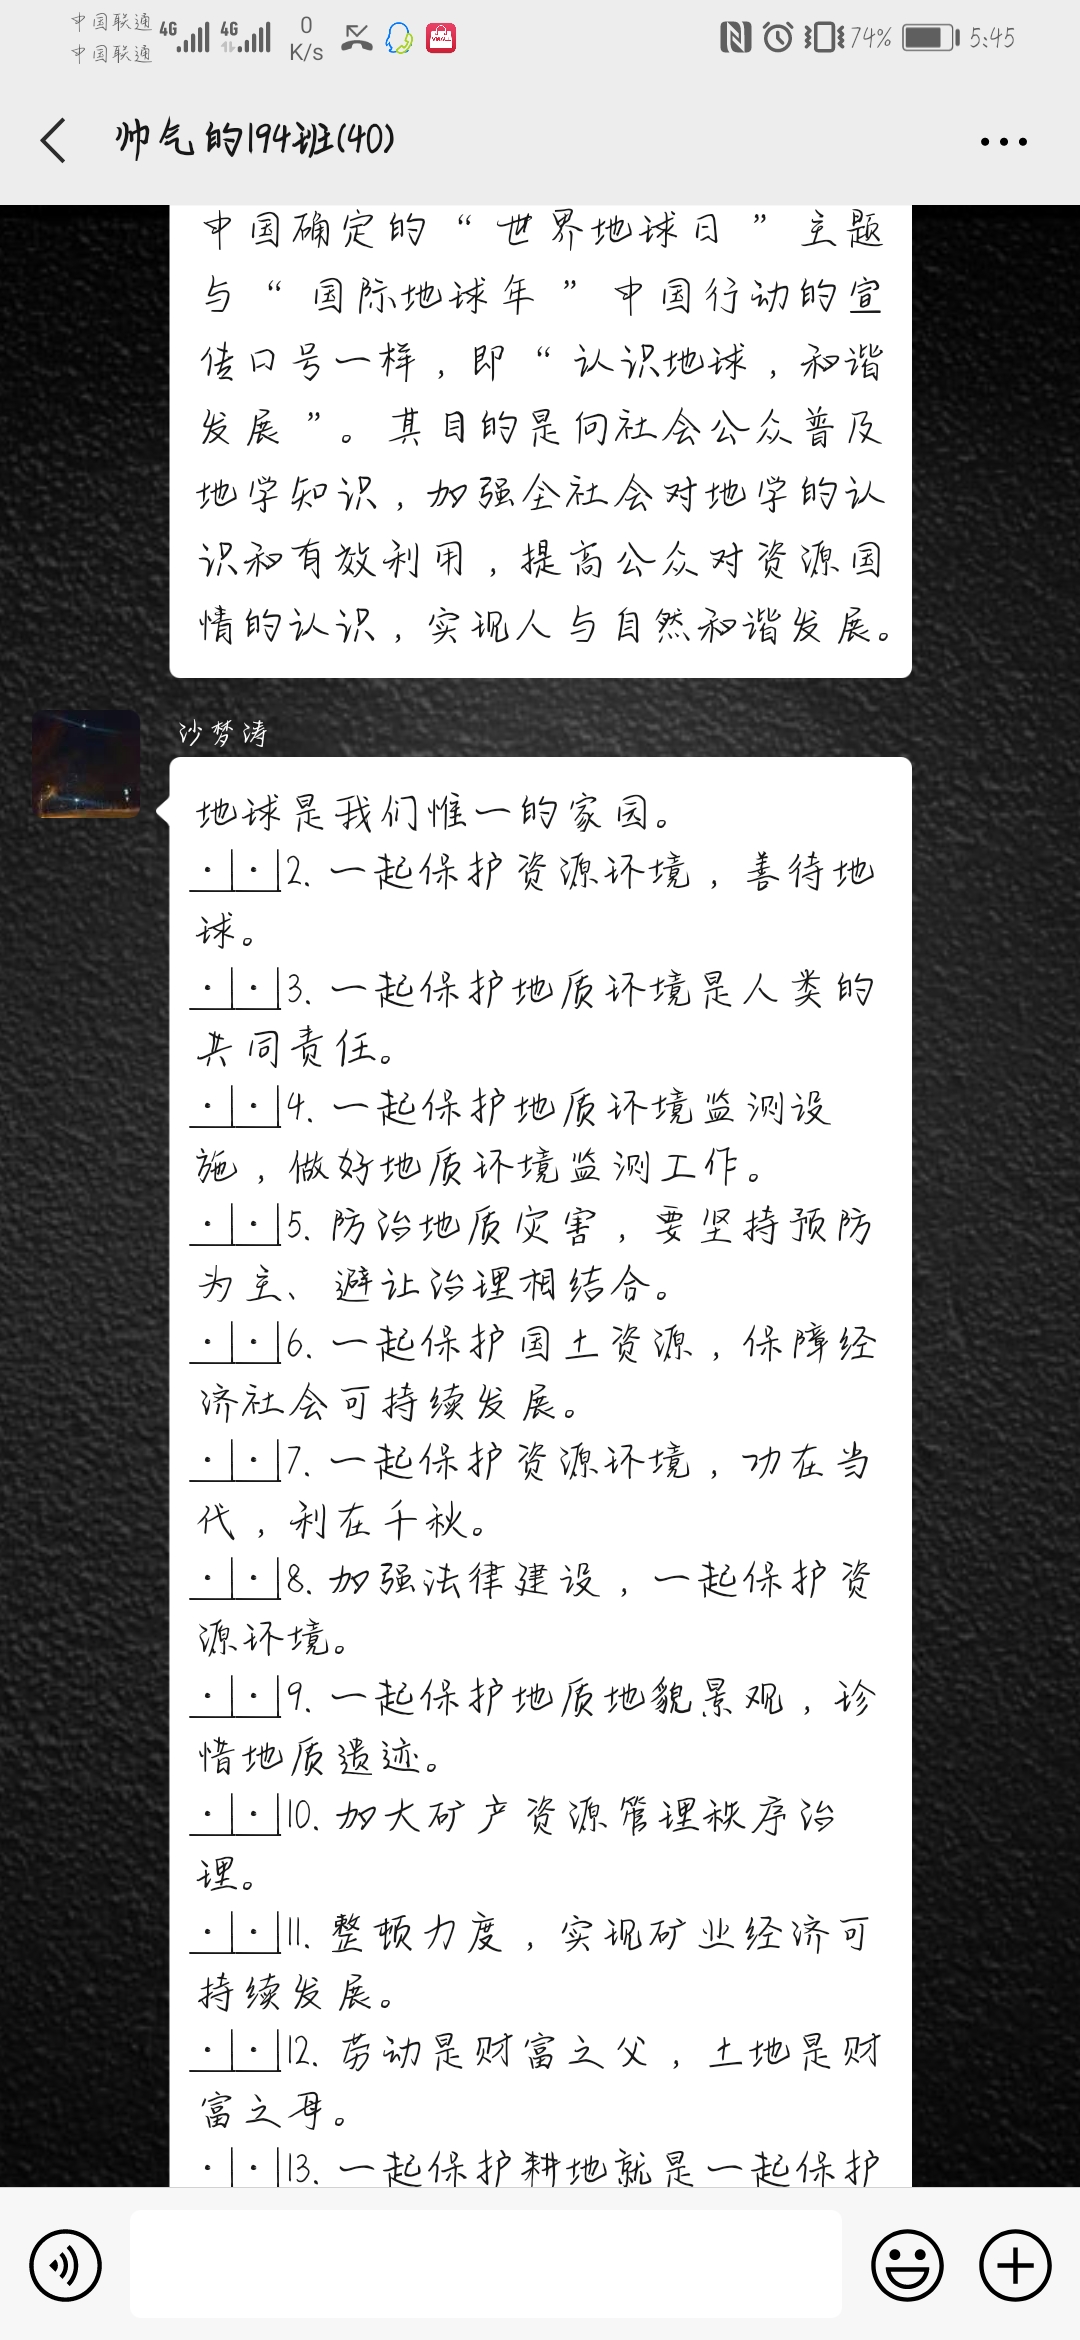 中国联通 4G 4G 0 74% 5:45
中国联通 K/s
帅气的194班(40)
中国确定的“世界地球日”主题
与“国际地球年”中国行动的宣
传口号一样，即“认识地球，和谐
发展”。其目的是向社会公众普及
地学知识，加强全社会对地学的认
识和有效利用，提高公众对资源国
情的认识，实现人与自然和谐发展。
沙梦涛
地球是我们惟一的家园。
2. 一起保护资源环境，善待地
球。
3. 一起保护地质环境是人类的
共同责任。
4. 一起保护地质环境监测设
施，做好地质环境监测工作。
5. 防治地质灾害，要坚持预防
为主、避让治理相结合。
6. 一起保护国土资源，保障经
济社会可持续发展。
7. 一起保护资源环境，功在当
代，利在千秋。
8. 加强法律建设，一起保护资
源环境。
9. 一起保护地质地貌景观，珍
惜地质遗迹。
10. 加大矿产资源管理秩序治
理。
11. 整顿力度，实现矿业经济可
持续发展。
12. 劳动是财富之父，土地是财
富之母。
13. 一起保护耕地就是一起保护